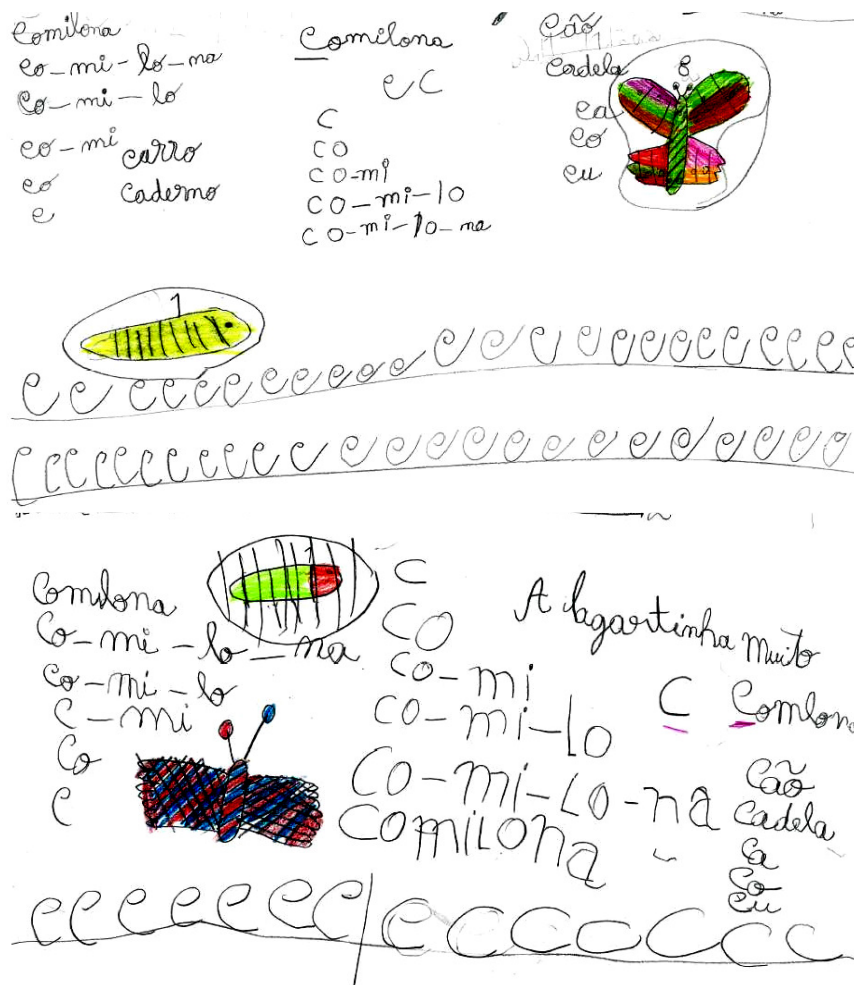 Comilona
Co-mi-lo-na
Co-mi-lo
co-mi
co
c
carro
caderno
Comilona
c C
C
CO
CO-mi
CO-mi-lo
CO-mi-lo-na
Cão
Cadela
ca
co
cu
8
1
C C C C C C C C C C C C C C C C C C C C C C C C
C C C C C C C C C C C C C C C C C C C C C C C
Comilona
Co-mi-lo-na
Co-mi-lo
C-mi
Co
C
1
C
CO
CO-mi
CO-mi-lo
CO-mi-LO-na
COmiLOna
A lagartinha Muito
C Comlona
Cão
Cadela
Ca
Co
Cu
C C C C C C C C C C C C C C